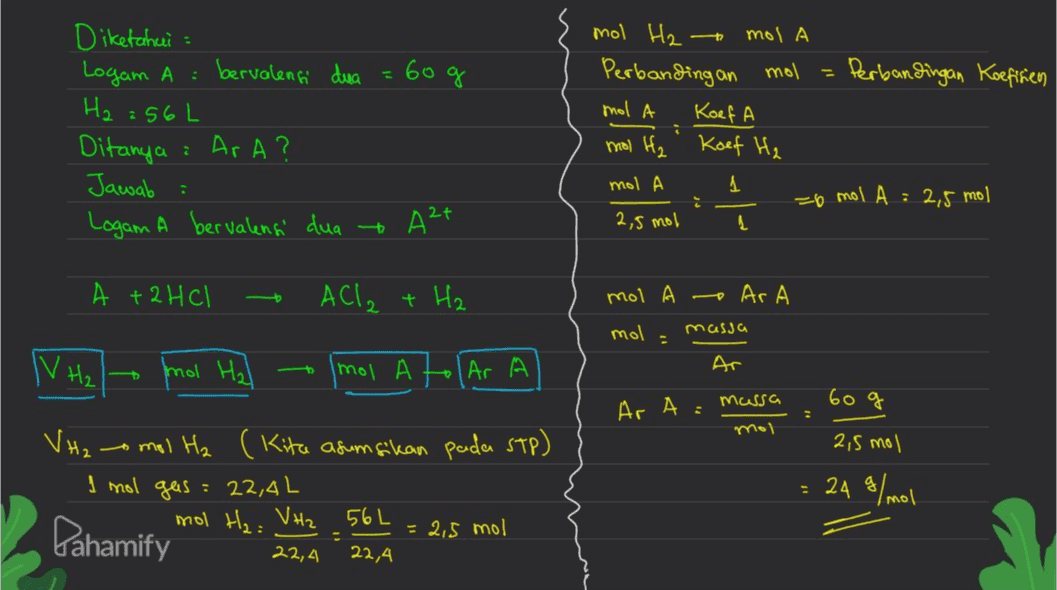 Diketahui :
Logam A : bervalensi dua = 60 g
H2 : 56 L
Ditanya : Ar A ?
Jawab :
Logam A bervalensi dua → A²⁺
A + 2HCl → ACl₂ + H₂
V H₂ → mol H₂ → mol A → Ar A
V H₂ → mol H₂ ( Kita asumsikan pada STP)
1 mol gas = 22,4 L
mol H₂ = V H₂ / 22,4 = 56 L / 22,4 = 2,5 mol
Pahamify
mol H₂ → mol A
Perbandingan mol = Perbandingan Koefisien
mol A / mol H₂ = Koef A / Koef H₂
mol A / 2,5 mol = 1 / 1 ⇒ mol A = 2,5 mol
mol A → Ar A
mol = massa / Ar
Ar A = massa / mol = 60 g / 2,5 mol
= 24 g/mol